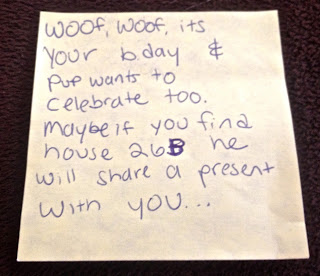 WOOF, WOOF, its
Your bday &
Pup wants to
Celebrate too.
Maybe if you find
house 26B he
will share a present
with you...